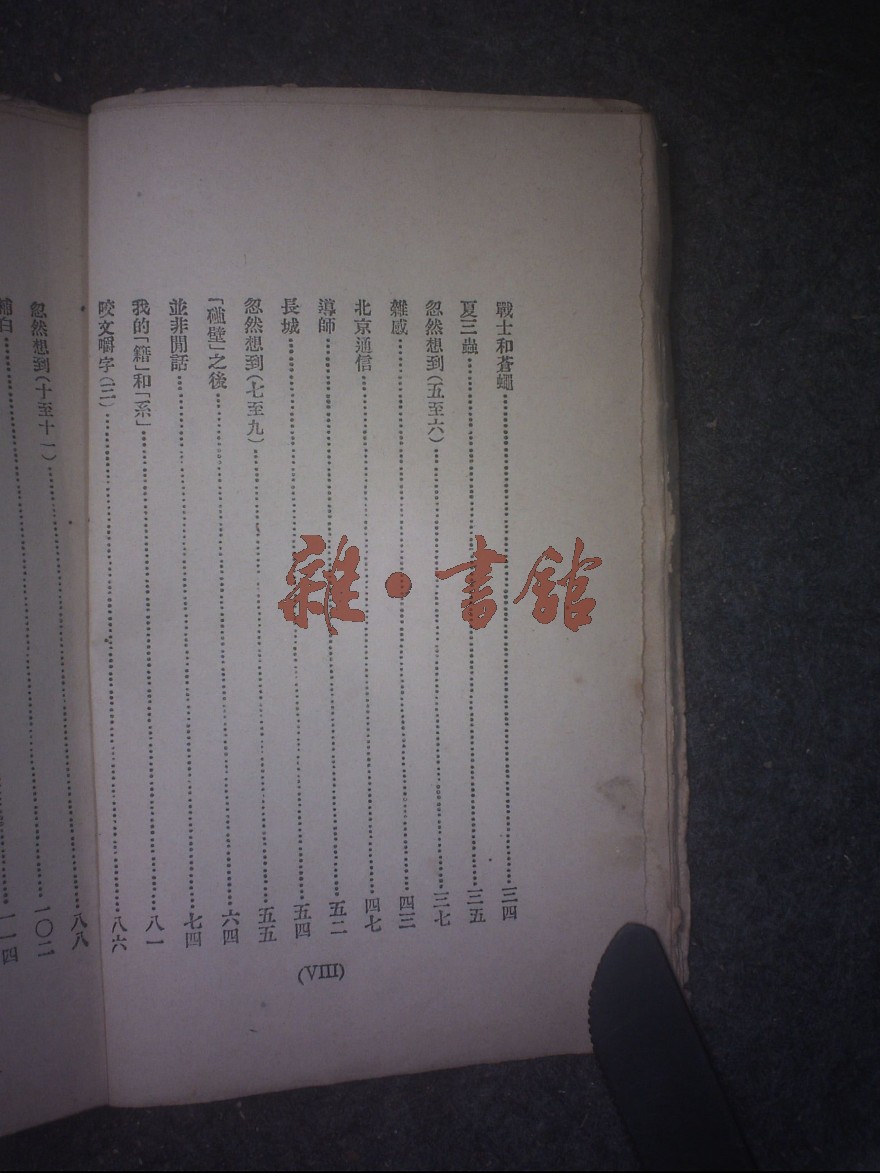 戰士和蒼蠅……三四
夏三蟲……三五
忽然想到(五至六)……三七
雜感……四三
北京通信……四七
導師……五二
長城……五四
忽然想到(七至九)……五五
「碰壁」之後……六四
並非閒話……七四
我的「籍」和「系」……八一
咬文嚼字(三)……八六
(VIII)
忽然想到(十至十一)……八八
補白……一〇二
一一四
雜·書館